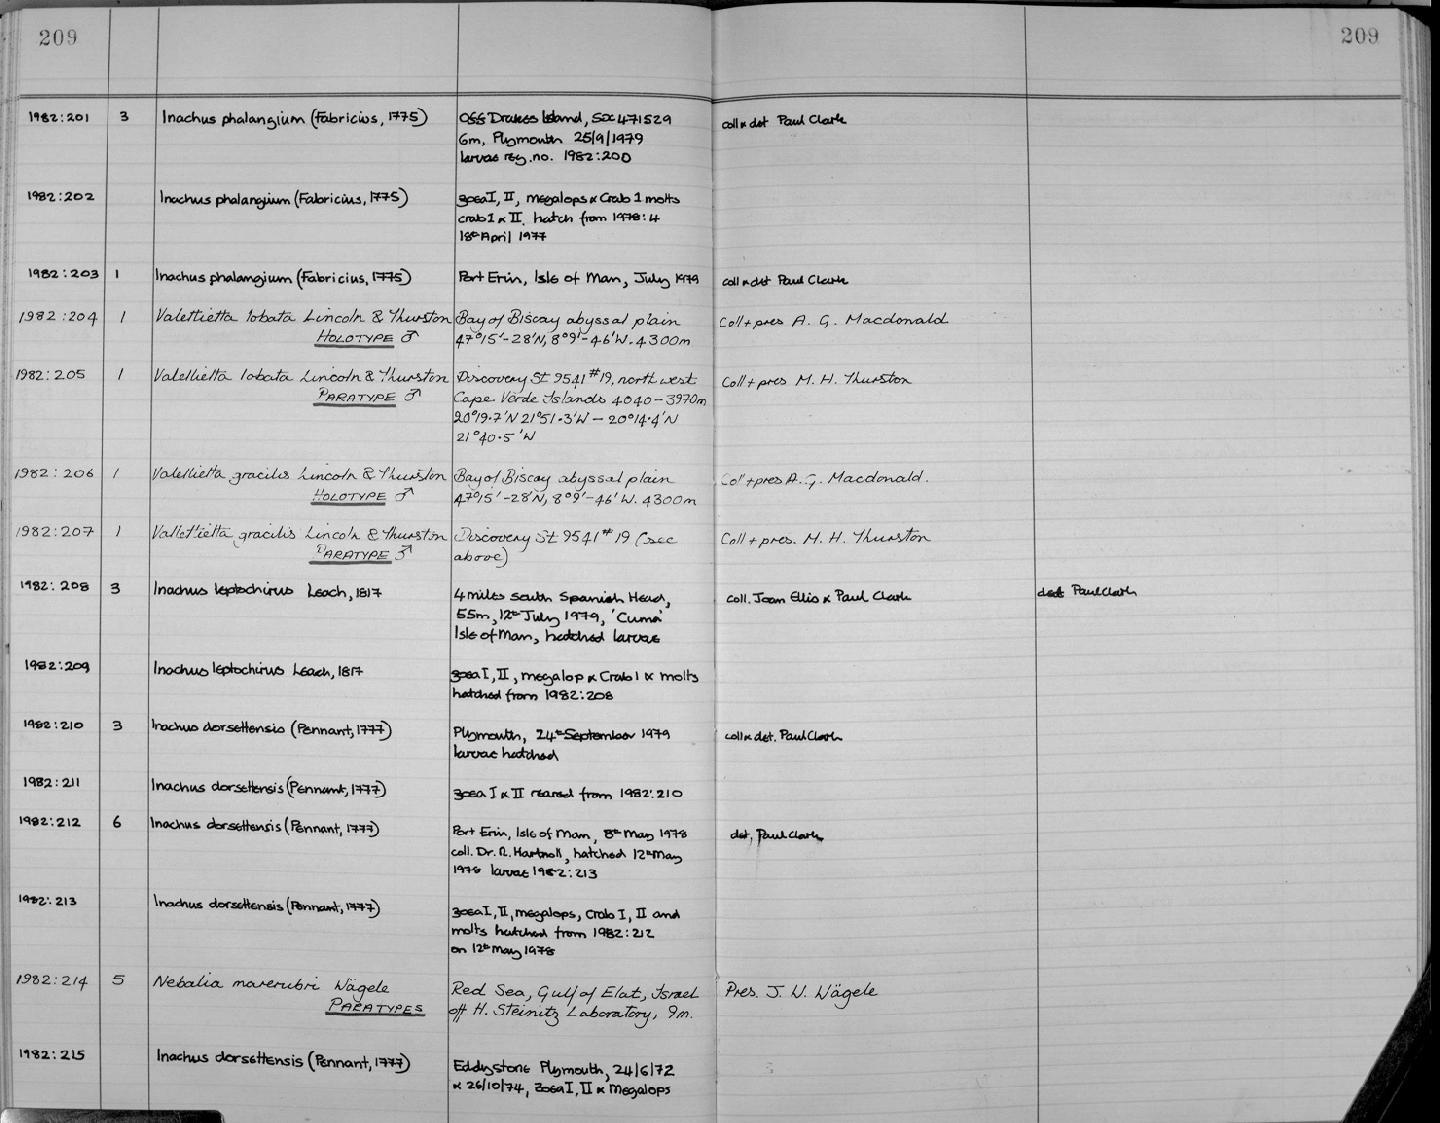 209
209
1982:201 3 Inachus phalangium (Fabricius, 1775) Off Drakes Island, SX 471529 coll & det Paul Clark
6m. Plymouth 25/9/1979
larvae reg. no. 1982:200
1982:202 Inachus phalangium (Fabricius, 1775) zoea I, II, megalops & Crab 1 molts
crab 1 & II. hatch from 1978:4
18th April 1977
1982:203 1 Inachus phalangium (Fabricius, 1775) Port Erin, Isle of Man, July 1979 coll & det Paul Clark
1982:204 1 Valettietta lobata Lincoln & Thurston Bay of Biscay abyssal plain Coll + pres A. G. Macdonald
HOLOTYPE ♂ 47°15'-28'N, 8°9'-46'W. 4300m
1982:205 1 Valettietta lobata Lincoln & Thurston Discovery St 9541 #19, north west Coll + pres M. H. Thurston
PARATYPE ♂ Cape Verde Islands 4040-3970m
20°19.7'N 21°51.3'W - 20°14.4'N
21°40.5'W
1982:206 1 Valettietta gracilis Lincoln & Thurston Bay of Biscay abyssal plain Coll + pres A. G. Macdonald.
HOLOTYPE ♂ 47°15'-28'N, 8°9'-46'W. 4300m
1982:207 1 Valettietta gracilis Lincoln & Thurston Discovery St 9541 #19 (see Coll + pres. M. H. Thurston
PARATYPE ♂ above)
1982:208 3 Inachus leptochirus Leach, 1817 4 miles south Spanish Head, coll. Joan Ellis & Paul Clark det Paul Clark
55m, 12th July 1979, 'Cuma'
Isle of Man, hatched larvae
1982:209 Inachus leptochirus Leach, 1817 zoea I, II, megalop & Crab 1 & molts
hatched from 1982:208
1982:210 3 Inachus dorsettensis (Pennant, 1777) Plymouth, 24th September 1979 coll & det. Paul Clark
larvae hatched
1982:211 Inachus dorsettensis (Pennant, 1777) zoea I & II reared from 1982:210
1982:212 6 Inachus dorsettensis (Pennant, 1777) Port Erin, Isle of Man, 8th May 1978 det, Paul Clark
coll. Dr. R. Hartnoll, hatched 12th May
1978 larvae 1982:213
1982:213 Inachus dorsettensis (Pennant, 1777) zoea I, II, megalops, Crab I, II and
molts hatched from 1982:212
on 12th May 1978
1982:214 5 Nebalia marerubri Wägele Red Sea, Gulf of Elat, Israel Pres. J. W. Wägele
PARATYPES off H. Steinitz Laboratory, 9m.
1982:215 Inachus dorsettensis (Pennant, 1777) Eddystone Plymouth, 24/6/72
& 26/10/74, zoea I, II & Megalops